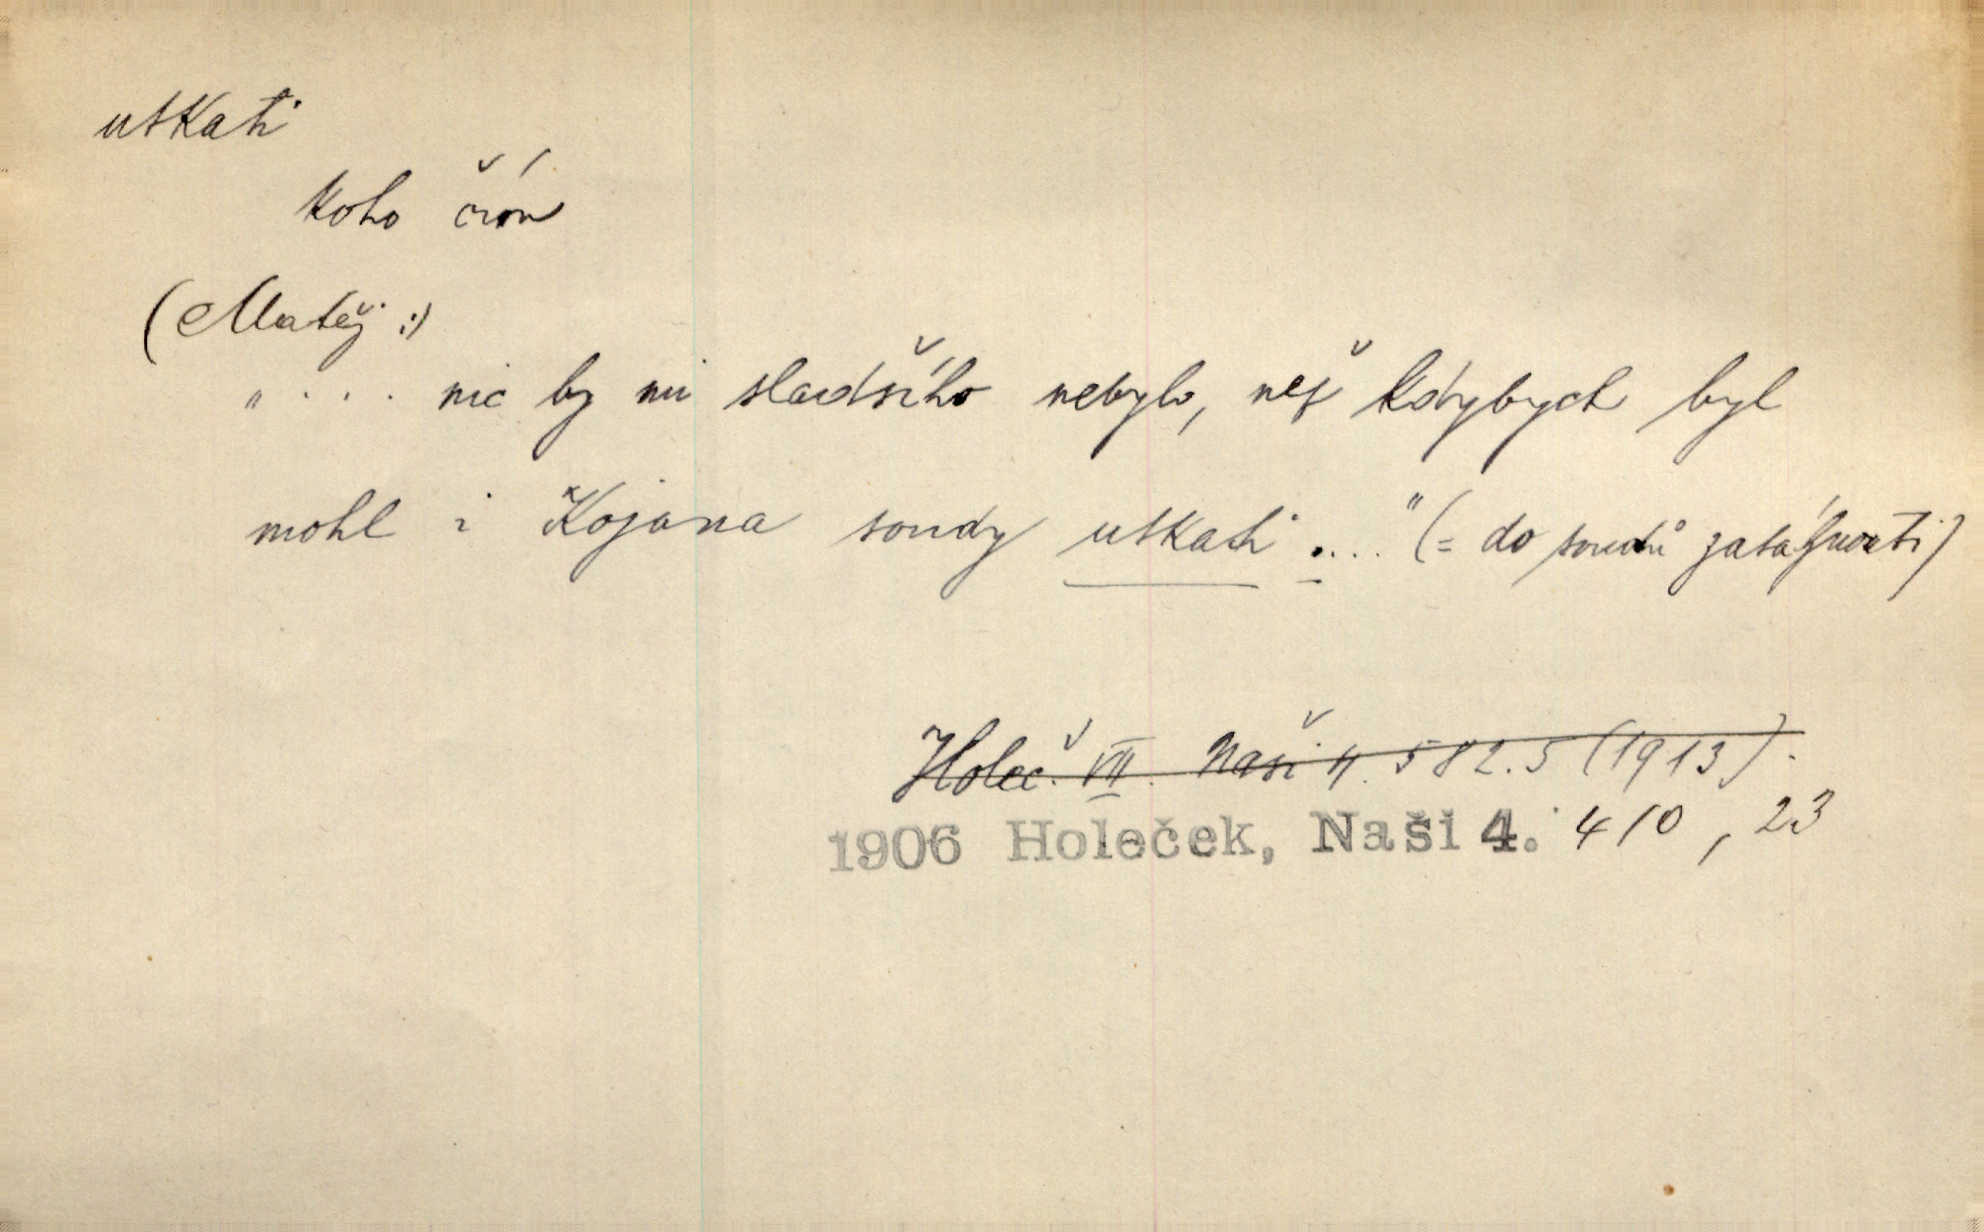 utkati
koho čím
(Matěj:)
„ . . . nic by mi sladšího nebylo, než kdybych byl
mohl i Kojana soudy utkati ...." (= do soudů zatáhnouti)
Holeč. VII. Naši 4. 582.5 (1913).
1906 Holeček, Naši 4. 410, 23